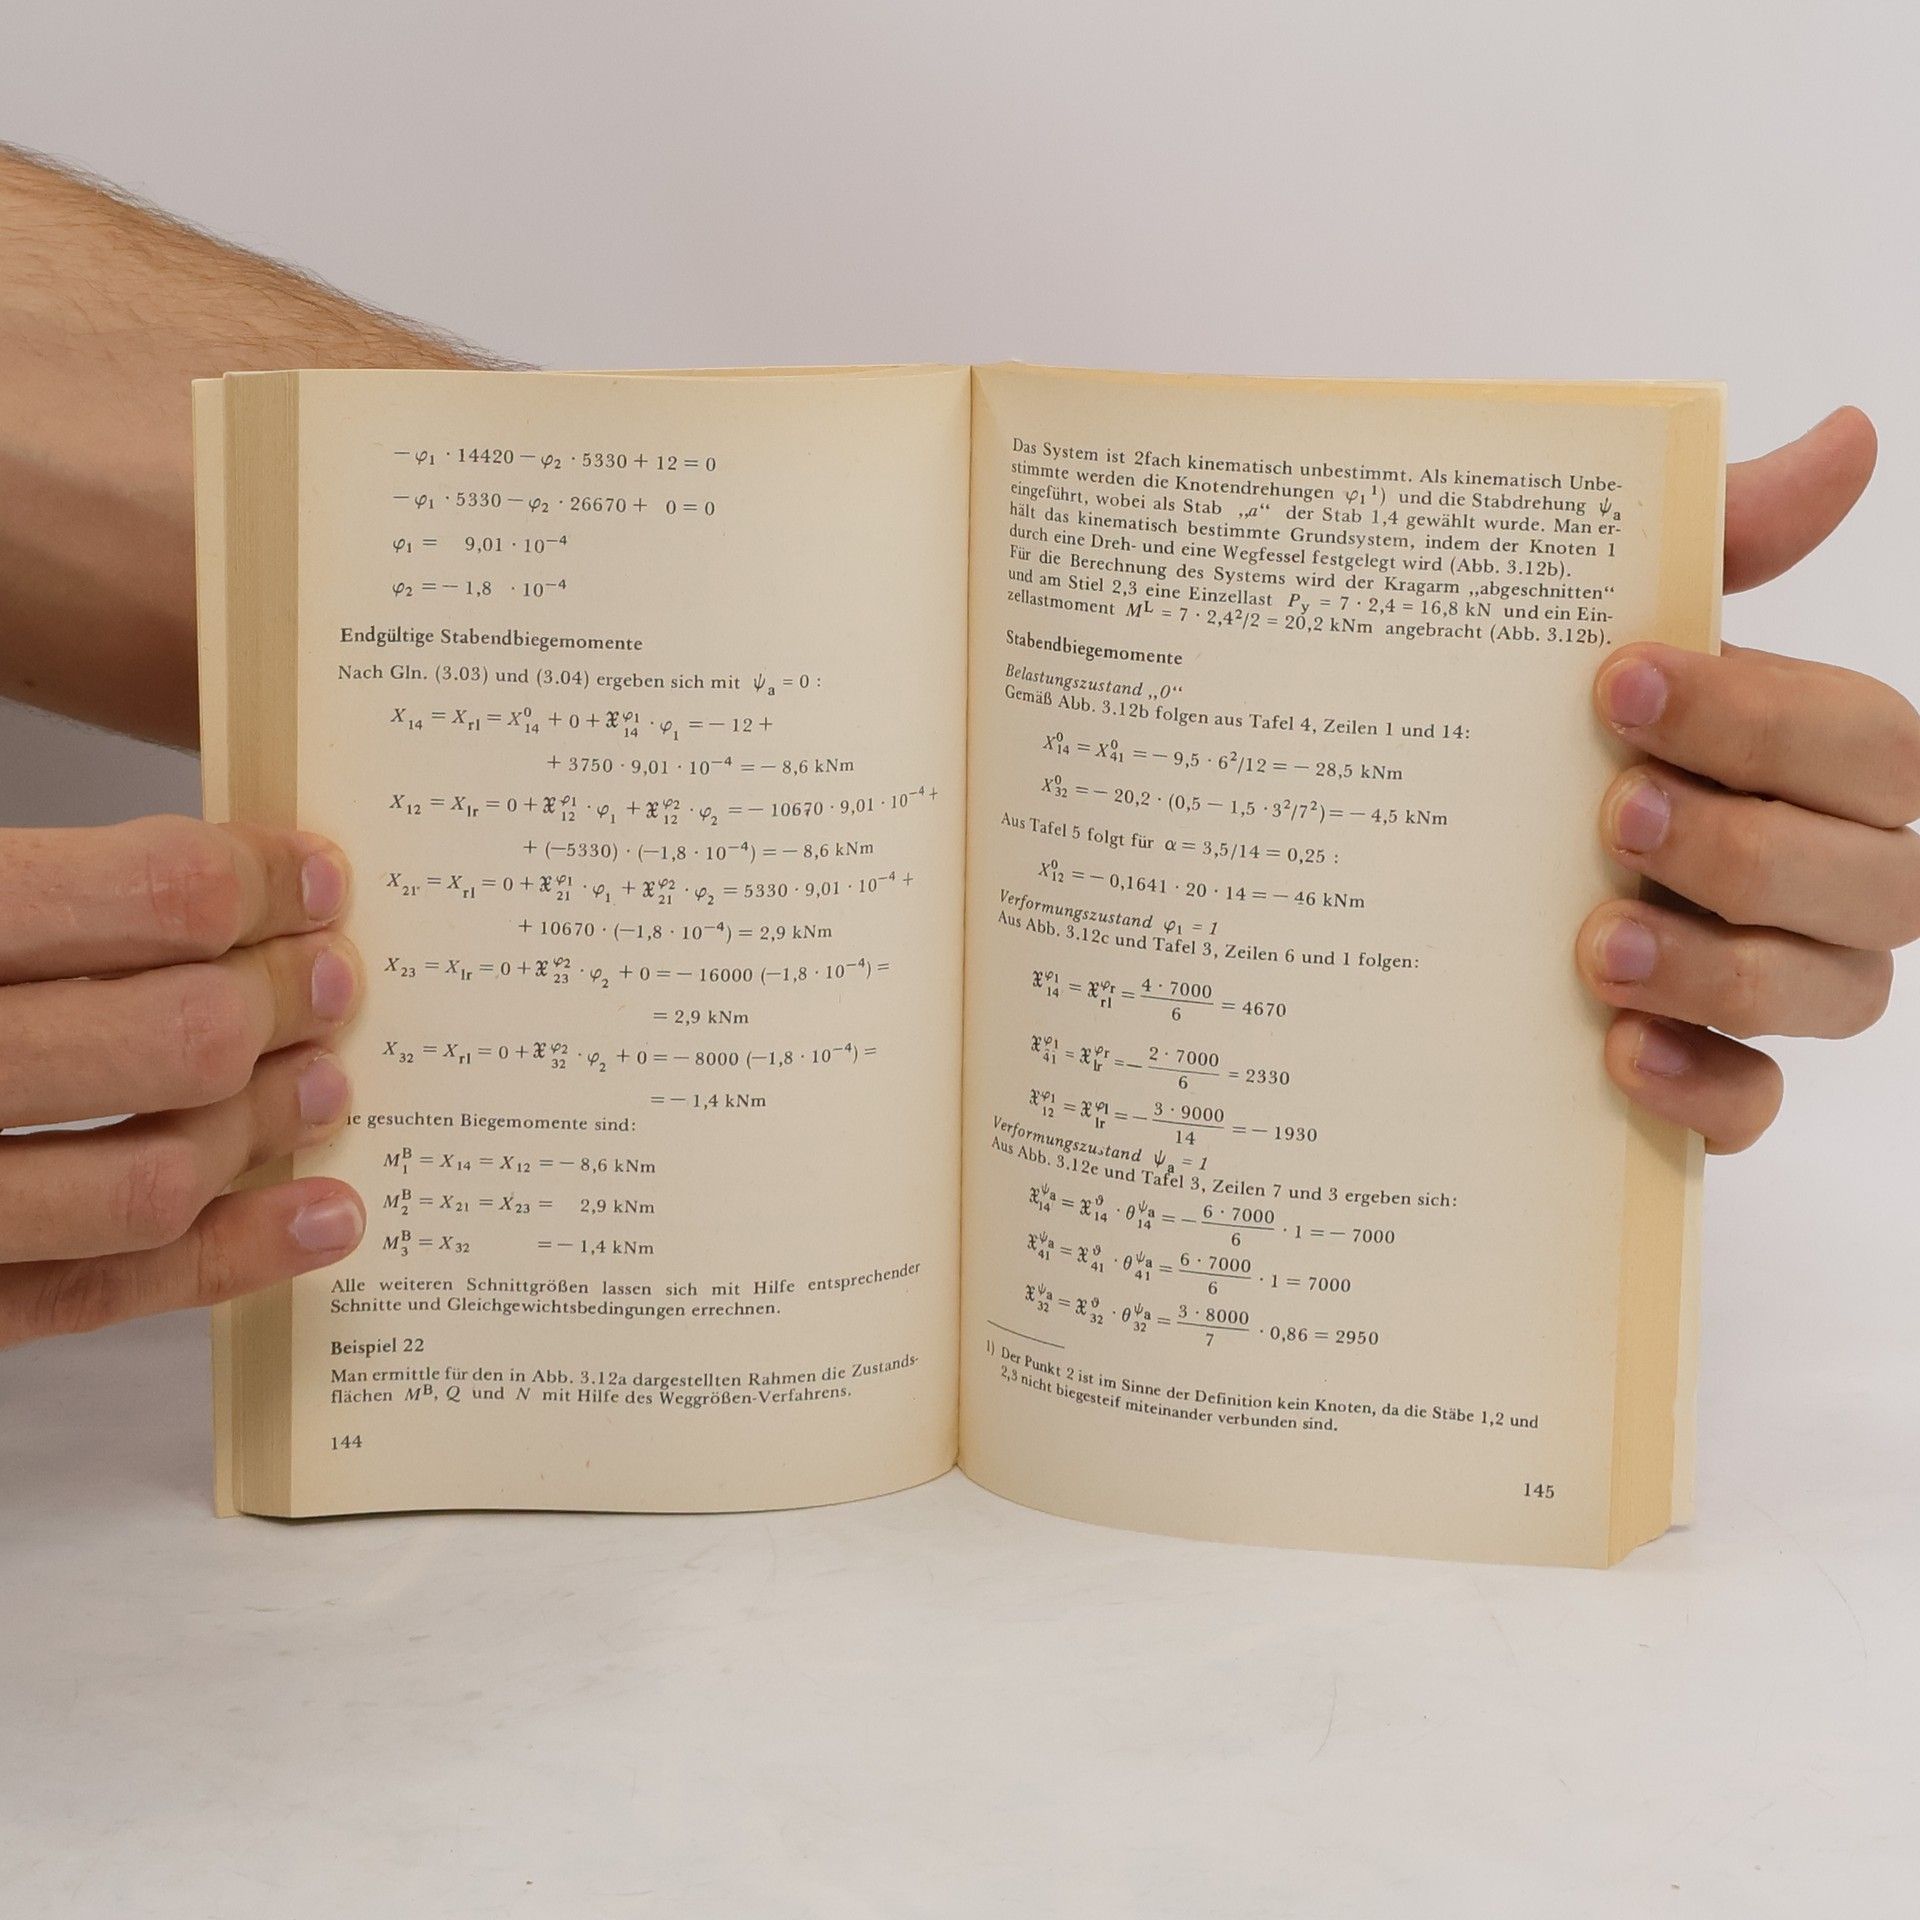 −φ₁ · 14420 − φ₂ · 5330 + 12 = 0
−φ₁ · 5330 − φ₂ · 26670 + 0 = 0
φ₁ = 9,01 · 10⁻⁴
φ₂ = − 1,8 · 10⁻⁴
Endgültige Stabendbiegemomente
Nach Gln. (3.03) und (3.04) ergeben sich mit ψₐ = 0 :
X₁₄ = X_rl = X⁰₁₄ + 0 + 𝔛^φ₁₁₄ · φ₁ = − 12 +
+ 3750 · 9,01 · 10⁻⁴ = − 8,6 kNm
X₁₂ = X_lr = 0 + 𝔛^φ₁₁₂ · φ₁ + 𝔛^φ₂₁₂ · φ₂ = − 10670 · 9,01 · 10⁻⁴ +
+ (−5330) · (−1,8 · 10⁻⁴) = − 8,6 kNm
X₂₁ = X_rl = 0 + 𝔛^φ₁₂₁ · φ₁ + 𝔛^φ₂₂₁ · φ₂ = 5330 · 9,01 · 10⁻⁴ +
+ 10670 · (−1,8 · 10⁻⁴) = 2,9 kNm
X₂₃ = X_lr = 0 + 𝔛^φ₂₂₃ · φ₂ + 0 = − 16000 (−1,8 · 10⁻⁴) =
= 2,9 kNm
X₃₂ = X_rl = 0 + 𝔛^φ₂₃₂ · φ₂ + 0 = − 8000 (−1,8 · 10⁻⁴) =
= − 1,4 kNm
ie gesuchten Biegemomente sind:
M^B₁ = X₁₄ = X₁₂ = − 8,6 kNm
M^B₂ = X₂₁ = X₂₃ = 2,9 kNm
M^B₃ = X₃₂ = − 1,4 kNm
Alle weiteren Schnittgrößen lassen sich mit Hilfe entsprechender
Schnitte und Gleichgewichtsbedingungen errechnen.
Beispiel 22
Man ermittle für den in Abb. 3.12a dargestellten Rahmen die Zustands-
flächen M^B, Q und N mit Hilfe des Weggrößen-Verfahrens.
144
Das System ist 2fach kinematisch unbestimmt. Als kinematisch Unbe-
stimmte werden die Knotendrehungen φ₁ ¹) und die Stabdrehung ψₐ
eingeführt, wobei als Stab „a“ der Stab 1,4 gewählt wurde. Man er-
hält das kinematisch bestimmte Grundsystem, indem der Knoten 1
durch eine Dreh- und eine Wegfessel festgelegt wird (Abb. 3.12b).
Für die Berechnung des Systems wird der Kragarm „abgeschnitten“
und am Stiel 2,3 eine Einzellast P_y = 7 · 2,4 = 16,8 kN und ein Ein-
zellastmoment M^L = 7 · 2,4²/2 = 20,2 kNm angebracht (Abb. 3.12b).
Stabendbiegemomente
Belastungszustand „0“
Gemäß Abb. 3.12b folgen aus Tafel 4, Zeilen 1 und 14:
X⁰₁₄ = X⁰₄₁ = − 9,5 · 6²/12 = − 28,5 kNm
X⁰₃₂ = − 20,2 · (0,5 − 1,5 · 3²/7²) = − 4,5 kNm
Aus Tafel 5 folgt für α = 3,5/14 = 0,25 :
X⁰₁₂ = − 0,1641 · 20 · 14 = − 46 kNm
Verformungszustand φ₁ = 1
Aus Abb. 3.12c und Tafel 3, Zeilen 6 und 1 folgen:
𝔛^φ₁₁₄ = 𝔛^φr_rl = 4 · 7000 / 6 = 4670
𝔛^φ₁₄₁ = 𝔛^φr_lr = − 2 · 7000 / 6 = 2330
𝔛^φ₁₁₂ = 𝔛^φl_lr = − 3 · 9000 / 14 = − 1930
Verformungszustand ψₐ = 1
Aus Abb. 3.12e und Tafel 3, Zeilen 7 und 3 ergeben sich:
𝔛^ψₐ₁₄ = 𝔛^ϑ₁₄ · θ^ψₐ₁₄ = − 6 · 7000 / 6 · 1 = − 7000
𝔛^ψₐ₄₁ = 𝔛^ϑ₄₁ · θ^ψₐ₄₁ = 6 · 7000 / 6 · 1 = 7000
𝔛^ψₐ₃₂ = 𝔛^ϑ₃₂ · θ^ψₐ₃₂ = 3 · 8000 / 7 · 0,86 = 2950
1) Der Punkt 2 ist im Sinne der Definition kein Knoten, da die Stäbe 1,2 und
2,3 nicht biegesteif miteinander verbunden sind.
145